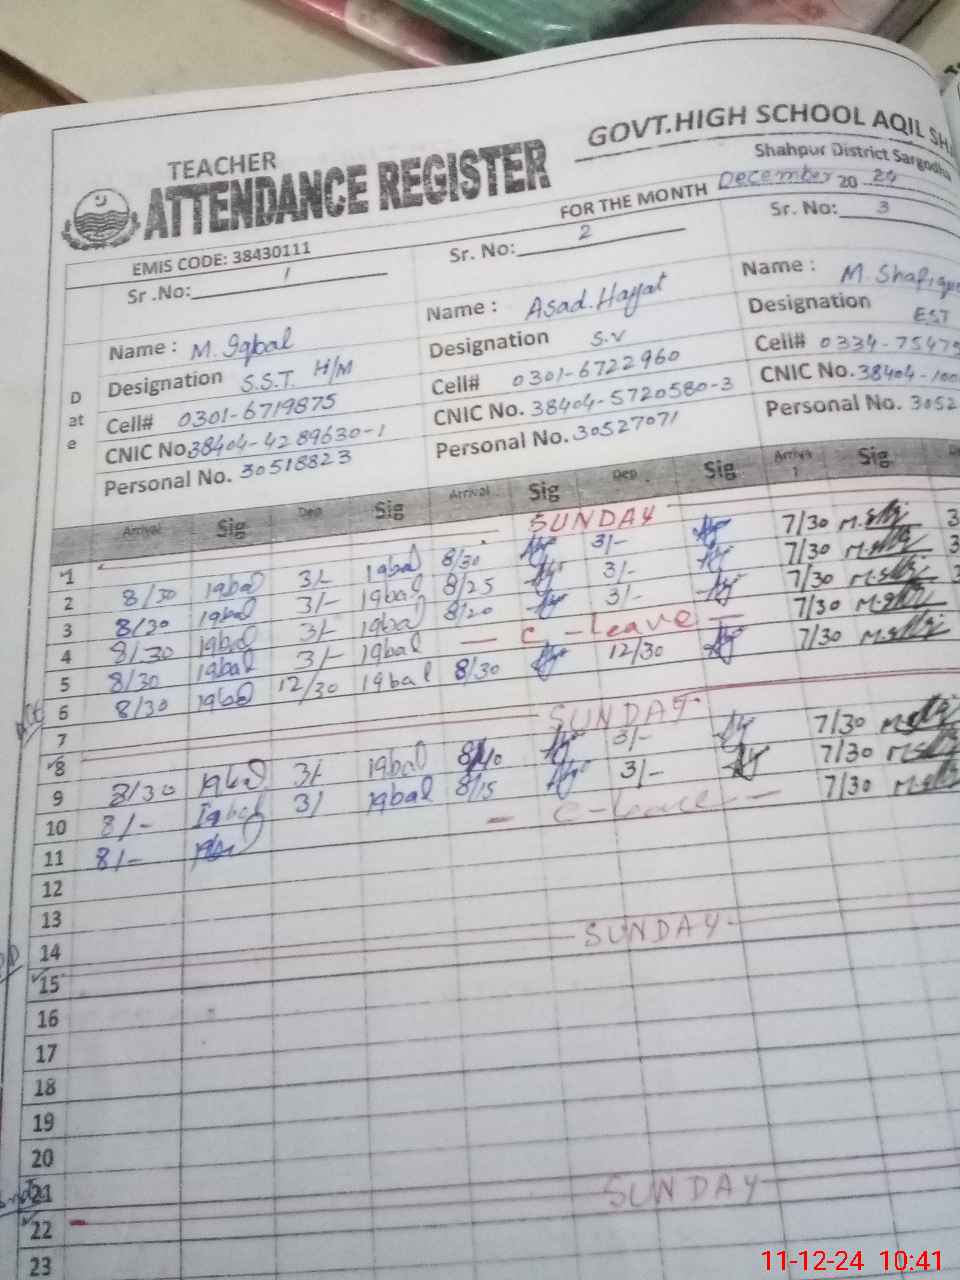 TEACHER
ATTENDANCE REGISTER
GOVT.HIGH SCHOOL AQIL SH
Shahpur District Sargodha
FOR THE MONTH December 20 24
EMIS CODE: 38430111
Sr .No: 1
Sr. No: 2
Sr. No: 3
Name : M. Iqbal
Name : Asad. Hayat
Name : M. Shafique
Designation S.S.T. H/M
Designation S.V
Designation EST
Cell# 0301-6719875
Cell# 0301-6722960
Cell# 0334-7547
CNIC No. 38404-4289630-1
CNIC No. 38404-5720580-3
CNIC No. 38404-100
Personal No. 30518823
Personal No. 30527071
Personal No. 3052
D
at
e
Arrival Sig Dep Sig Arrival Sig Dep Sig Arriva l Sig
1 SUNDAY
2 8/30 Iqbal 3/- Iqbal 8/30 3/- 7/30
3 8/30 Iqbal 3/- Iqbal 8/25 3/- 7/30
4 8/30 Iqbal 3/- Iqbal 8/20 3/- 7/30
5 8/30 Iqbal 3/- Iqbal - C - Leave - 7/30
6 8/30 Iqbal 12/30 Iqbal 8/30 12/30 7/30
7
8 SUNDAY
9 8/30 Iqbal 3/- Iqbal 3/- 7/30
10 8/- Iqbal 3/ Iqbal 8/15 3/- 7/30
11 8/- - C-Leave - 7/30
12
13
14
15 SUNDAY
16
17
18
19
20
21
22 SUNDAY
23
11-12-24 10:41